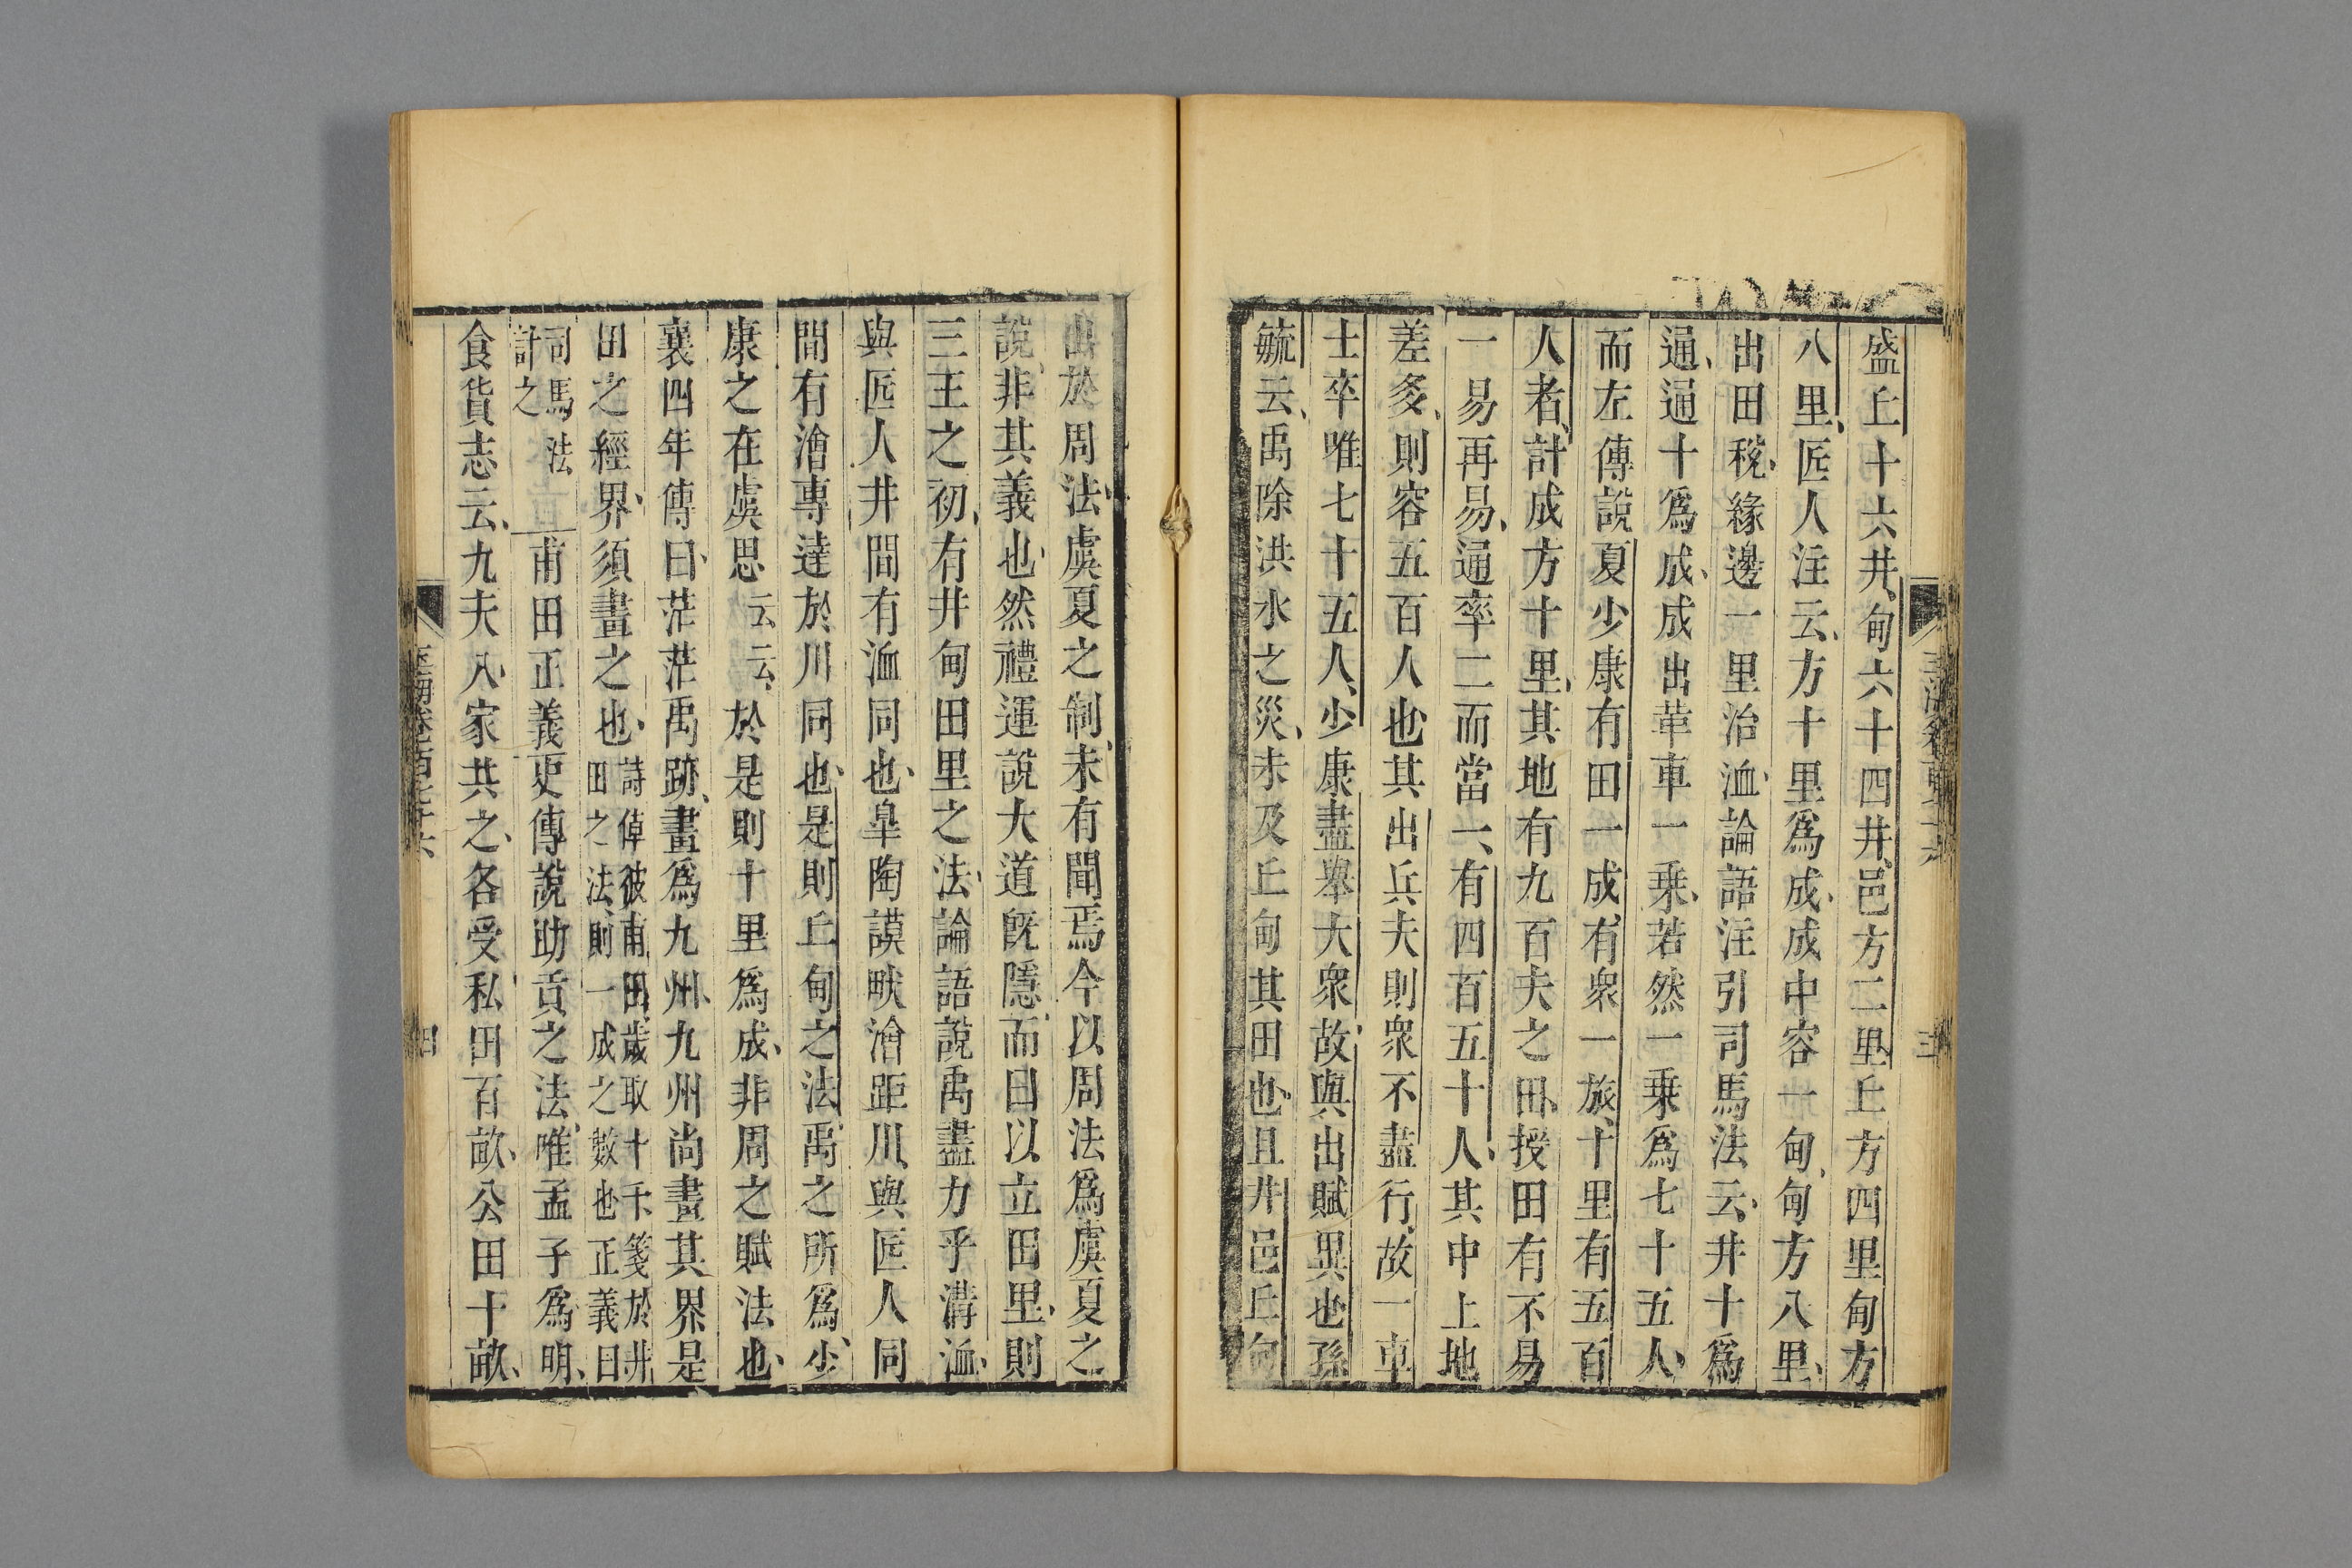 盛丘十六井甸六十四井邑方二里丘方四里甸方
八里、匠人注云、方十里爲成、成中容一甸、甸方八里、
出田稅、緣邊一里治洫、論語注引司馬法云、井十爲
通、通十爲成、成出革車一乗、若然一乗爲七十五人、
而左傳說夏少康有田一成、有衆一旅、十里有五百
人者、計成方十里、其地有九百夫之田、授田有不易
一易再易、通率二而當一、有四百五十人、其中上地
差多、則容五百人也其出兵夫則衆不盡行、故一車
士卒唯七十五人、少康盡舉大衆、故與出賦異也孫
毓云、禹除洪水之災、未及丘甸其田也、且井邑丘甸
出於周法、虞夏之制、未有聞焉今以周法爲虞夏之
說、非其義也、然禮運說大道旣隱、而曰以立田里、則
三王之初、有井甸田里之法、論語說禹盡力乎溝洫、
與匠人井間有洫同也、臯陶謨畎澮距川、與匠人同
間有澮專達於川同也、是則丘甸之法、禹之所爲、少
康之在虞思云云、於是則十里爲成、非周之賦法也、
襄四年傳曰、茫茫禹跡、畫爲九州、九州尚畫其界是
田之經界、須畫之也、詩倬彼甫田、歲取十千、箋於井
田之法、則一成之數也正義曰
司馬法
計之
甫田正義史傳說助貢之法、唯孟子爲明、
食貨志云、九夫八家共之、各受私田百畝、公田十畝、